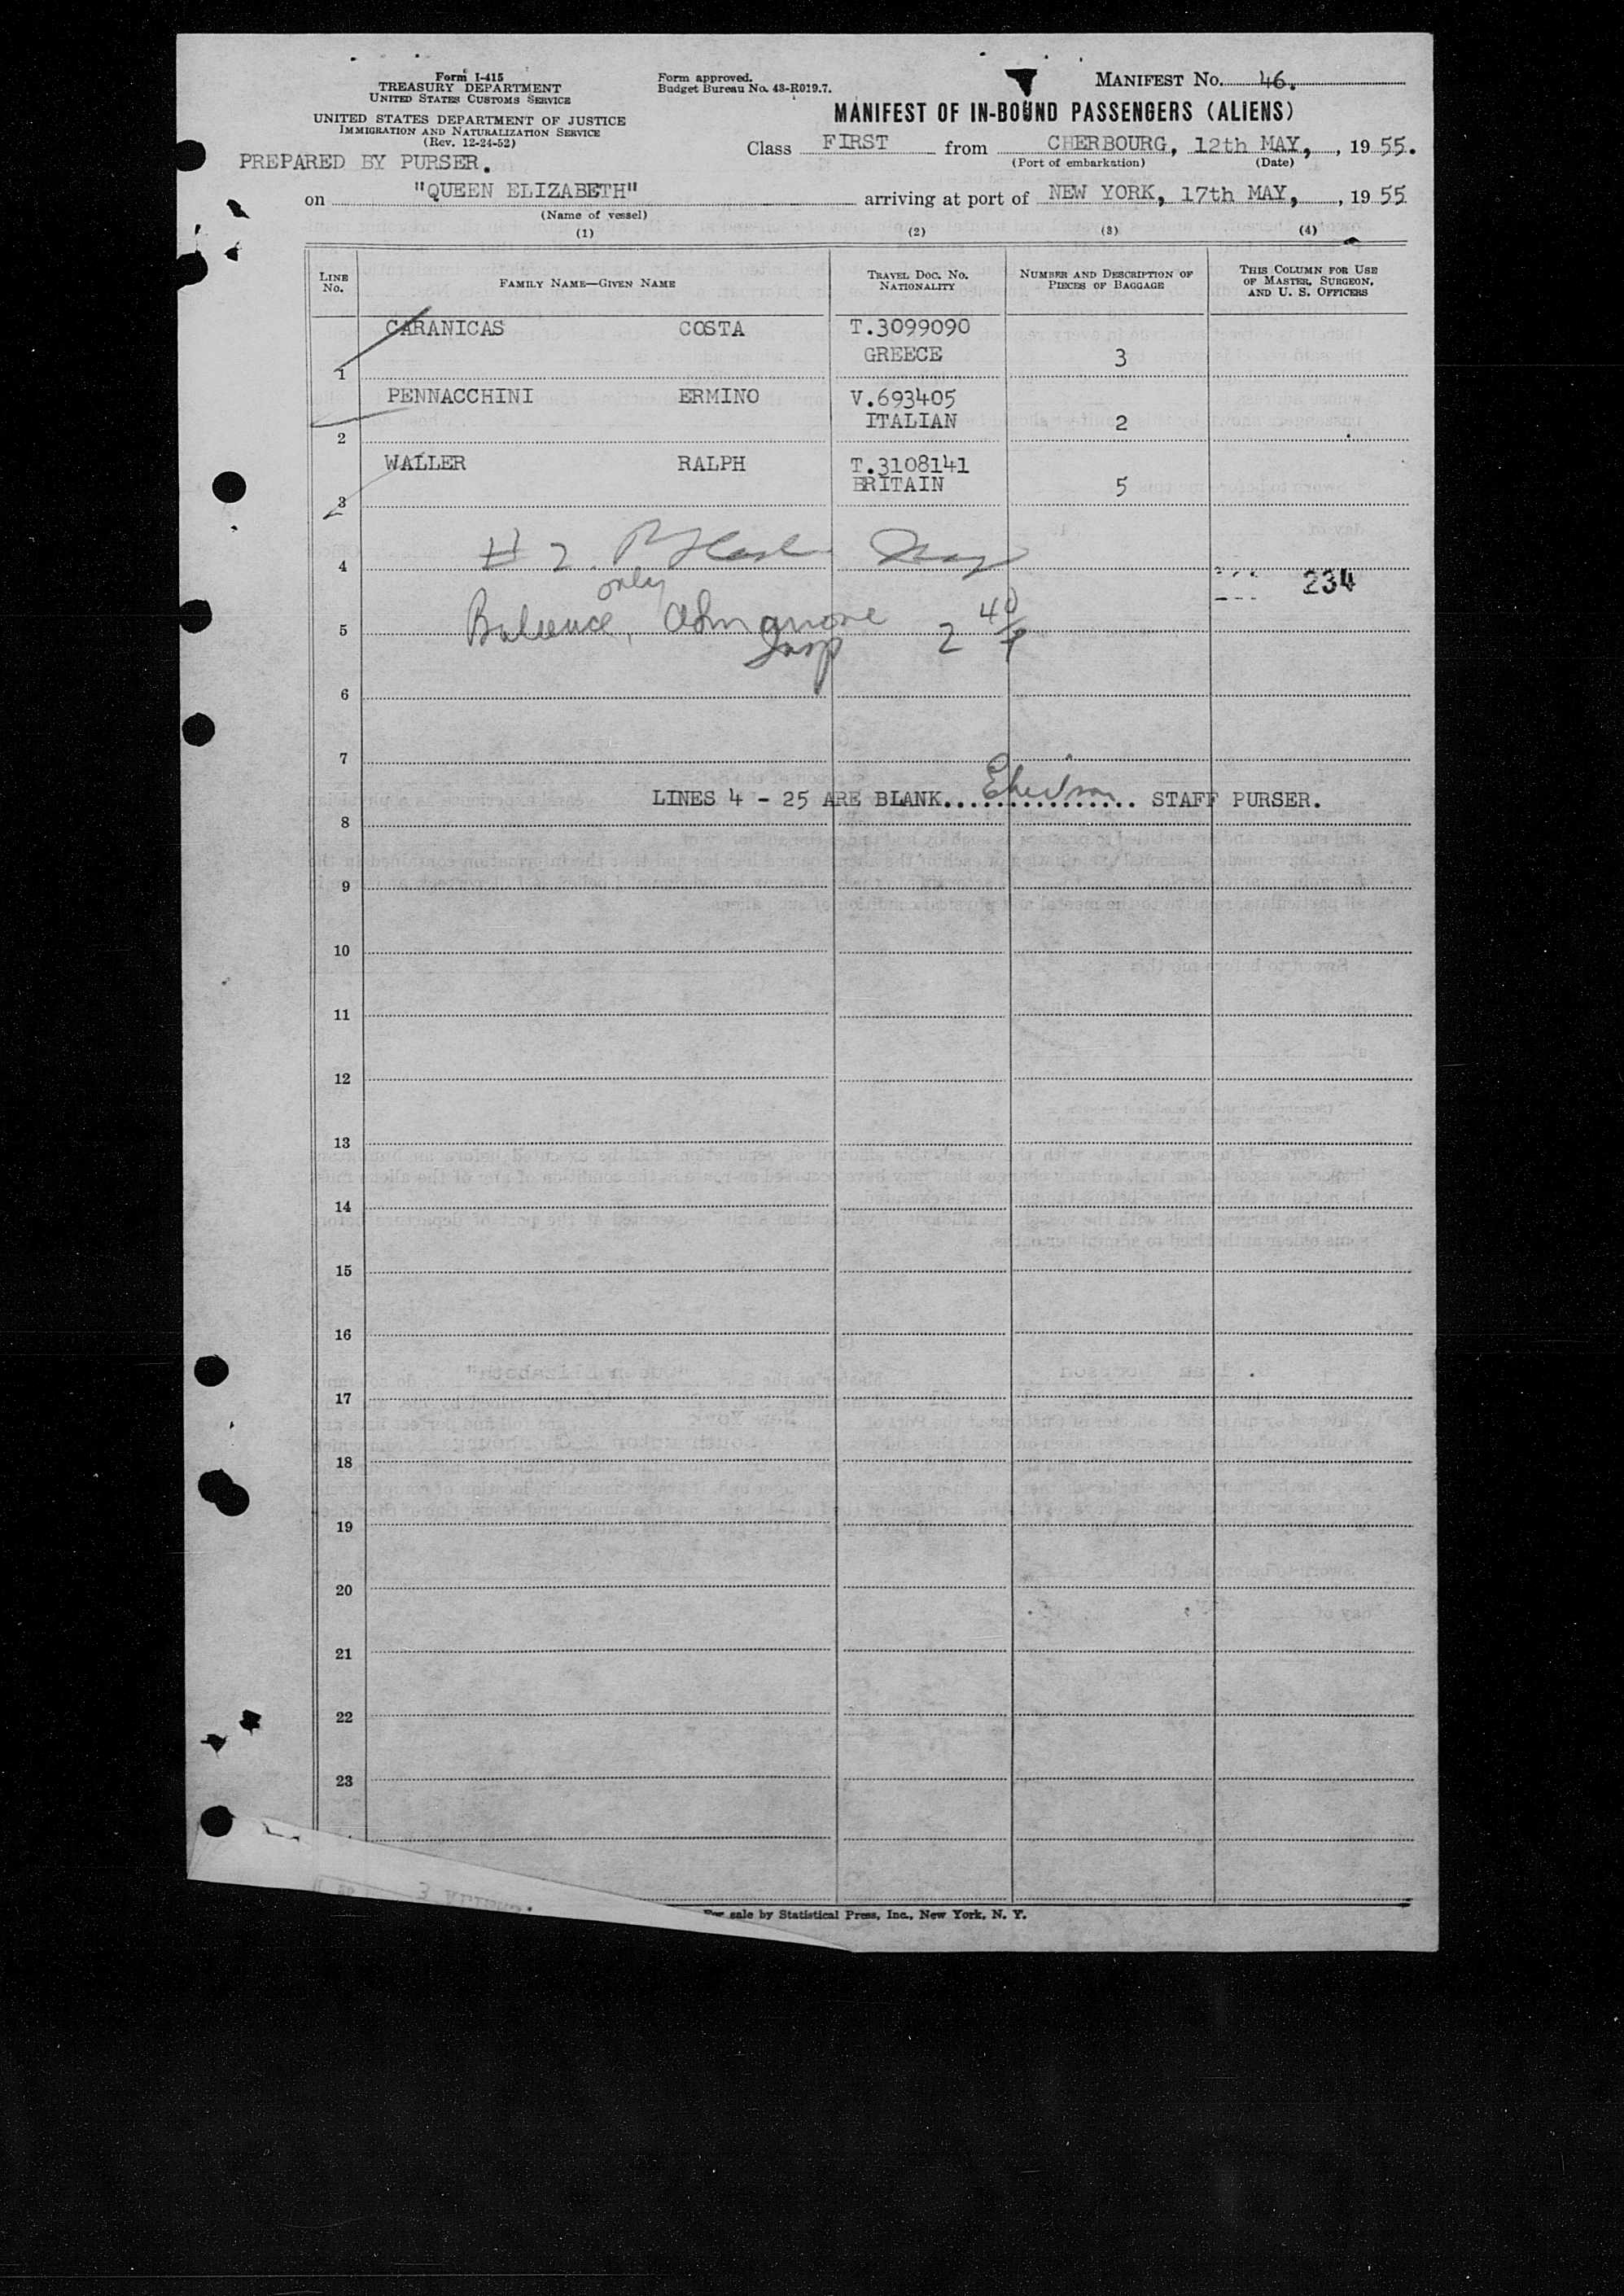 Form I-415
TREASURY DEPARTMENT
UNITED STATES CUSTOMS SERVICE
UNITED STATES DEPARTMENT OF JUSTICE
IMMIGRATION AND NATURALIZATION SERVICE
(Rev. 12-24-52)
PREPARED BY PURSER.
Form approved.
Budget Bureau No. 43-R019.7.
MANIFEST NO. 46.
MANIFEST OF IN-BOUND PASSENGERS (ALIENS)
Class FIRST from CHERBOURG, 12th MAY, , 19 55.
(Port of embarkation) (Date)
on "QUEEN ELIZABETH" arriving at port of NEW YORK, 17th MAY, , 19 55
(Name of vessel)
(1) (2) (3) (4)
LINE NO. FAMILY NAME—GIVEN NAME TRAVEL DOC. NO. NATIONALITY NUMBER AND DESCRIPTION OF PIECES OF BAGGAGE THIS COLUMN FOR USE OF MASTER, SURGEON, AND U. S. OFFICERS
CARANICAS COSTA T.3099090
1 GREECE 3
PENNACCHINI ERMINO V.693405
2 ITALIAN 2
WALLER RALPH T.3108141
3 BRITAIN 5
# 2
4 234
only
5 2 40
Insp
6
7
LINES 4 - 25 ARE BLANK................ STAFF PURSER.
8
9
10
11
12
13
14
15
16
17
18
19
20
21
22
23
For sale by Statistical Press, Inc., New York, N. Y.